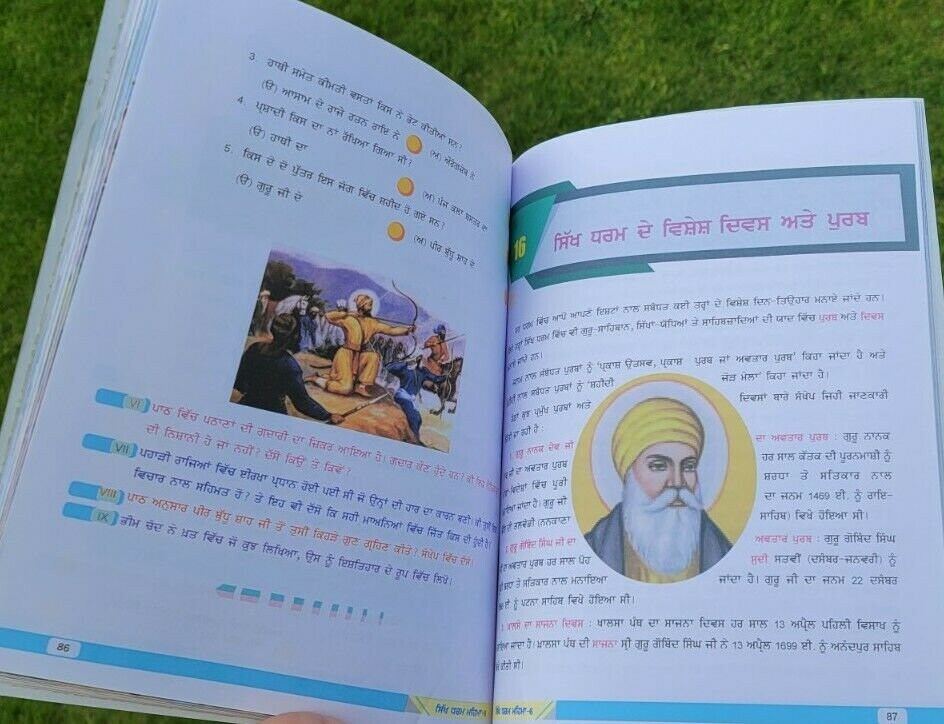 3. ਹਾਥੀ ਸਮੇਤ ਕੀਮਤੀ ਵਸਤਾਂ ਕਿਸ ਨੇ ਭੇਟ ਕੀਤੀਆਂ ਸਨ?
(ੳ) ਆਸਾਮ ਦੇ ਰਾਜੇ ਰਤਨ ਰਾਇ ਨੇ (ਅ) ਔਰੰਗਜ਼ੇਬ ਨੇ
4. ਪ੍ਰਸਾਦੀ ਕਿਸ ਦਾ ਨਾਂ ਰੱਖਿਆ ਗਿਆ ਸੀ?
(ੳ) ਹਾਥੀ ਦਾ (ਅ) ਪੰਜ ਕਲਾ ਸ਼ਸਤਰ ਦਾ
5. ਕਿਸ ਦੇ ਦੋ ਪੁੱਤਰ ਇਸ ਜੰਗ ਵਿੱਚ ਸ਼ਹੀਦ ਹੋ ਗਏ ਸਨ?
(ੳ) ਗੁਰੂ ਜੀ ਦੇ (ਅ) ਪੀਰ ਬੁੱਧੂ ਸ਼ਾਹ ਦੇ
VI ਪਾਠ ਵਿੱਚ ਪਠਾਣਾਂ ਦੀ ਗਦਾਰੀ ਦਾ ਜ਼ਿਕਰ ਆਇਆ ਹੈ। ਗਦਾਰ ਕੌਣ ਹੁੰਦੇ ਹਨ?
ਦੀ ਨਿਸ਼ਾਨੀ ਹੈ ਜਾਂ ਨਹੀਂ? ਦੱਸੋ ਕਿਉਂ ਤੇ ਕਿਵੇਂ?
VII ਪਹਾੜੀ ਰਾਜਿਆਂ ਵਿੱਚ ਈਰਖਾ ਪ੍ਰਧਾਨ ਹੋਈ ਪਈ ਸੀ ਜੋ ਉਨ੍ਹਾਂ ਦੀ ਹਾਰ ਦਾ ਕਾਰਨ ਬਣੀ। ਕੀ ਤੁਸੀਂ ਇਸ
ਵਿਚਾਰ ਨਾਲ ਸਹਿਮਤ ਹੋ? ਤੇ ਇਹ ਵੀ ਦੱਸੋ ਕਿ ਸਹੀ ਮਾਅਨਿਆਂ ਵਿੱਚ ਜਿੱਤ ਕਿਸ ਦੀ ਹੁੰਦੀ ਹੈ?
VIII ਪਾਠ ਅਨੁਸਾਰ ਪੀਰ ਬੁੱਧੂ ਸ਼ਾਹ ਜੀ ਤੋਂ ਤੁਸੀਂ ਕਿਹੜੇ ਗੁਣ ਗ੍ਰਹਿਣ ਕੀਤੇ? ਸੰਖੇਪ ਵਿੱਚ ਦੱਸੋ।
IX ਭੀਮ ਚੰਦ ਨੇ ਖ਼ਤ ਵਿੱਚ ਜੋ ਕੁਝ ਲਿਖਿਆ, ਉਸ ਨੂੰ ਇਸ਼ਤਿਹਾਰ ਦੇ ਰੂਪ ਵਿੱਚ ਲਿਖੋ।
86
ਸਿੱਖ ਧਰਮ ਮਹਿਮਾ-6
16 ਸਿੱਖ ਧਰਮ ਦੇ ਵਿਸ਼ੇਸ਼ ਦਿਵਸ ਅਤੇ ਪੁਰਬ
ਧਰਮ ਵਿੱਚ ਆਪੋ ਆਪਣੇ ਇਸ਼ਟਾਂ ਨਾਲ ਸਬੰਧਤ ਕਈ ਤਰ੍ਹਾਂ ਦੇ ਵਿਸ਼ੇਸ਼ ਦਿਨ-ਤਿਉਹਾਰ ਮਨਾਏ ਜਾਂਦੇ ਹਨ।
ਸਿੱਖ ਧਰਮ ਵਿੱਚ ਵੀ ਗੁਰੂ-ਸਾਹਿਬਾਨ, ਸਿੰਘਾਂ-ਯੋਧਿਆਂ ਤੇ ਸਾਹਿਬਜ਼ਾਦਿਆਂ ਦੀ ਯਾਦ ਵਿੱਚ ਪੁਰਬ ਅਤੇ ਦਿਵਸ
ਜਾਂਦੇ ਹਨ।
ਨਾਲ ਸਬੰਧਤ ਪੁਰਬਾਂ ਨੂੰ 'ਪ੍ਰਕਾਸ਼ ਉਤਸਵ, ਪ੍ਰਕਾਸ਼ ਪੁਰਬ ਜਾਂ ਅਵਤਾਰ ਪੁਰਬ' ਕਿਹਾ ਜਾਂਦਾ ਹੈ ਅਤੇ
ਨਾਲ ਸਬੰਧਤ ਪੁਰਬਾਂ ਨੂੰ 'ਸ਼ਹੀਦੀ ਜੋੜ ਮੇਲਾ' ਕਿਹਾ ਜਾਂਦਾ ਹੈ।
ਕੁਝ ਪ੍ਰਮੁੱਖ ਪੁਰਬਾਂ ਅਤੇ ਦਿਵਸਾਂ ਬਾਰੇ ਸੰਖੇਪ ਜਿਹੀ ਜਾਣਕਾਰੀ
ਜਾ ਰਹੀ ਹੈ :
ਗੁਰੂ ਨਾਨਕ ਦੇਵ ਜੀ ਦਾ ਅਵਤਾਰ ਪੁਰਬ : ਗੁਰੂ ਨਾਨਕ
ਜੀ ਦਾ ਅਵਤਾਰ ਪੁਰਬ ਹਰ ਸਾਲ ਕੱਤਕ ਦੀ ਪੂਰਨਮਾਸ਼ੀ ਨੂੰ
ਵਿੱਚ ਪੂਰੀ ਸ਼ਰਧਾ ਤੇ ਸਤਿਕਾਰ ਨਾਲ
ਜਾਂਦਾ ਹੈ। ਗੁਰੂ ਜੀ ਦਾ ਜਨਮ 1469 ਈ. ਨੂੰ ਰਾਇ-
ਤਲਵੰਡੀ (ਨਨਕਾਣਾ ਸਾਹਿਬ) ਵਿਖੇ ਹੋਇਆ ਸੀ।
ਗੁਰੂ ਗੋਬਿੰਦ ਸਿੰਘ ਜੀ ਦਾ ਅਵਤਾਰ ਪੁਰਬ : ਗੁਰੂ ਗੋਬਿੰਦ ਸਿੰਘ
ਦਾ ਅਵਤਾਰ ਪੁਰਬ ਹਰ ਸਾਲ ਪੋਹ ਸੁਦੀ ਸਤਵੀਂ (ਦਸੰਬਰ-ਜਨਵਰੀ) ਨੂੰ
ਸ਼ਰਧਾ ਤੇ ਸਤਿਕਾਰ ਨਾਲ ਮਨਾਇਆ ਜਾਂਦਾ ਹੈ। ਗੁਰੂ ਜੀ ਦਾ ਜਨਮ 22 ਦਸੰਬਰ
ਈ. ਨੂੰ ਪਟਨਾ ਸਾਹਿਬ ਵਿਖੇ ਹੋਇਆ ਸੀ।
ਖ਼ਾਲਸੇ ਦਾ ਸਾਜਨਾ ਦਿਵਸ : ਖ਼ਾਲਸਾ ਪੰਥ ਦਾ ਸਾਜਨਾ ਦਿਵਸ ਹਰ ਸਾਲ 13 ਅਪ੍ਰੈਲ ਪਹਿਲੀ ਵਿਸਾਖ ਨੂੰ
ਜਾਂਦਾ ਹੈ। ਖ਼ਾਲਸਾ ਪੰਥ ਦੀ ਸਾਜਨਾ ਸ੍ਰੀ ਗੁਰੂ ਗੋਬਿੰਦ ਸਿੰਘ ਜੀ ਨੇ 13 ਅਪ੍ਰੈਲ 1699 ਈ. ਨੂੰ ਅਨੰਦਪੁਰ ਸਾਹਿਬ
ਕੀਤੀ ਸੀ।
ਸਿੱਖ ਧਰਮ ਮਹਿਮਾ-6
87